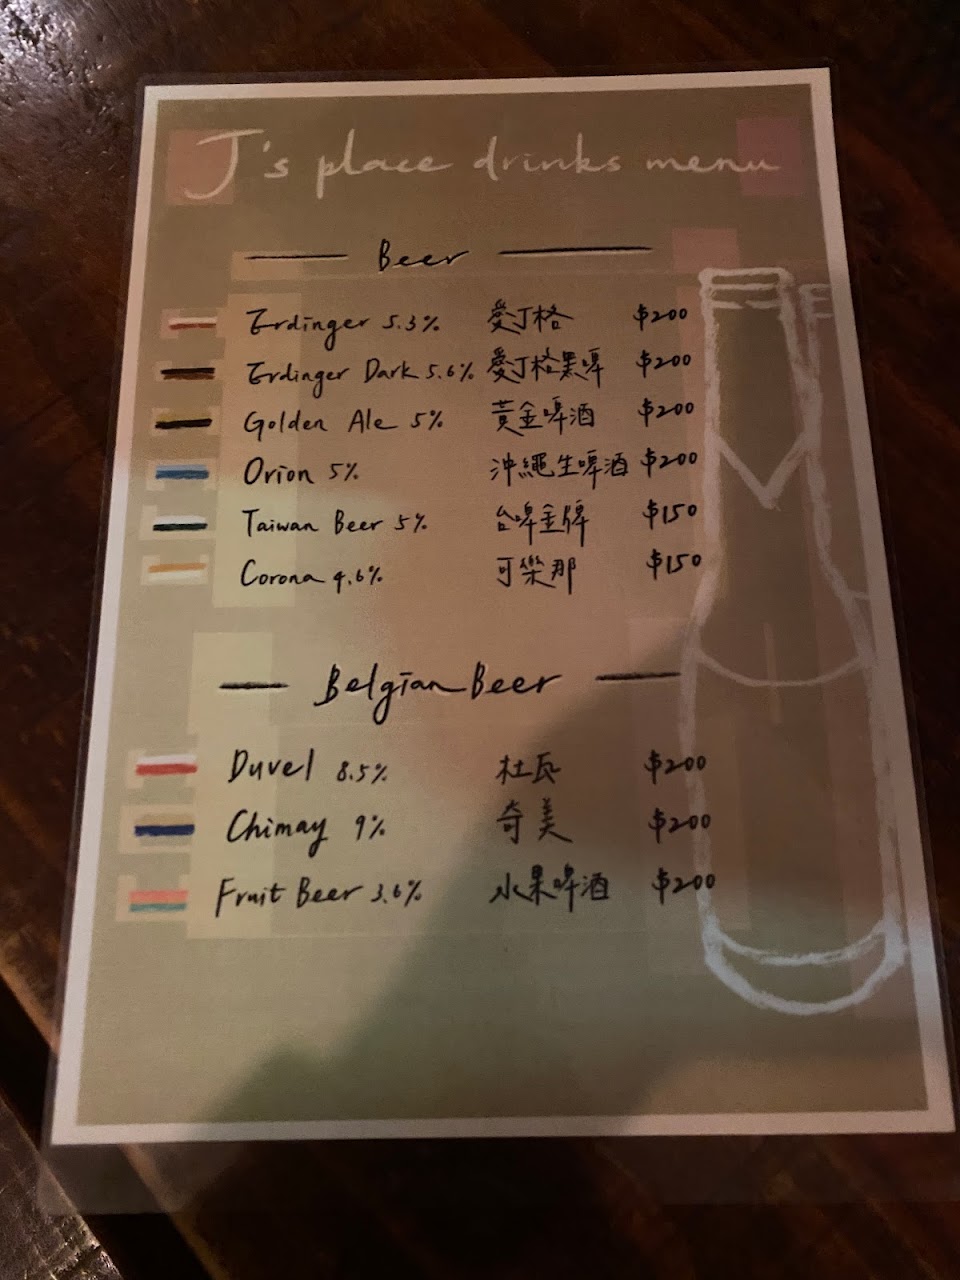 J's place drinks menu
Beer
Erdinger 5.3% 愛丁格 $200
Erdinger Dark 5.6% 愛丁格黑啤 $200
Golden Ale 5% 黃金啤酒 $200
Orion 5% 沖繩生啤酒 $200
Taiwan Beer 5% 台啤金牌 $150
Corona 4.6% 可樂那 $150
Belgian Beer
Duvel 8.5% 杜瓦 $200
Chimay 9% 奇美 $200
Fruit Beer 3.6% 水果啤酒 $200